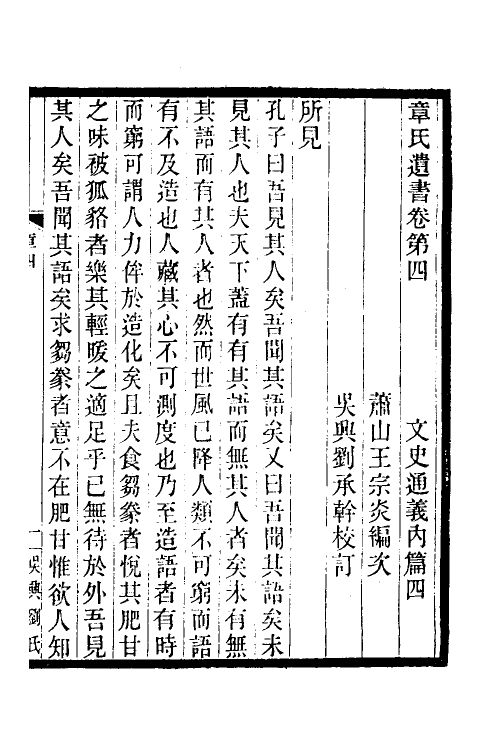 章氏遺書卷第四　文史通義內篇四
蕭山王宗炎編次
吳興劉承幹校訂
所見
孔子曰吾見其人矣吾聞其語矣又曰吾聞其語矣未
見其人也夫天下蓋有有其語而無其人者矣未有無
其語而有其人者也然而世風已降人類不可窮而語
有不及造也人藏其心不可測度也乃至造語者有時
而窮可謂人力侔於造化矣且夫食芻豢者悅其肥甘
之味被狐貉者樂其輕暖之適足乎己無待於外吾見
其人矣吾聞其語矣求芻豢者意不在肥甘惟欲人知
章四
一
吳興劉氏